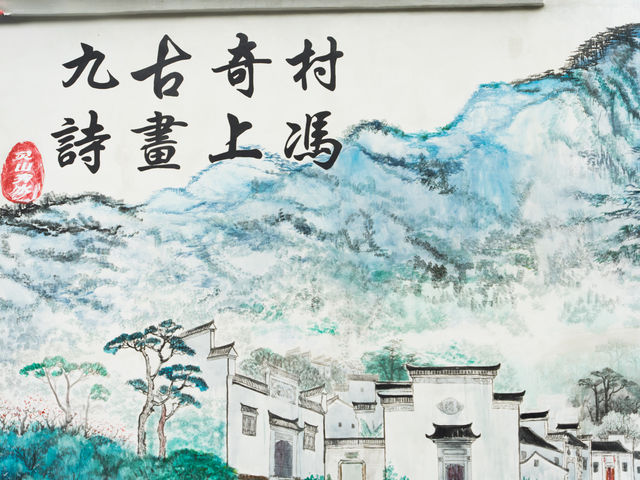 九古奇村
詩畫上馮